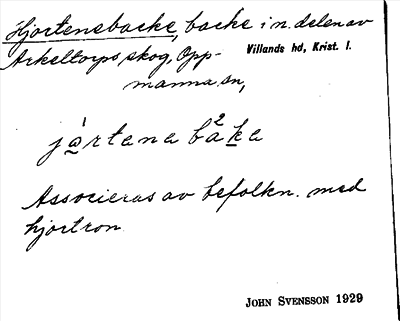 Hjortenebacke, backe i n. delen av
Arkeltorps skog, Opp-
manna sn,
Villands hd, Krist. l.
jα̱rtana ba²ḵa
Associeras av befolkn. med
hjortron
JOHN SVENSSON 1929